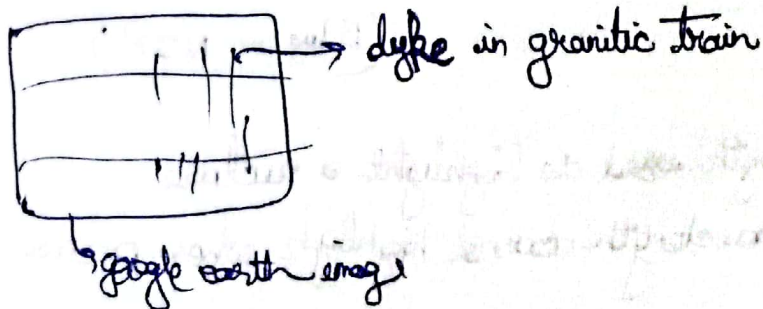 dyke in granitic train
google earth imag